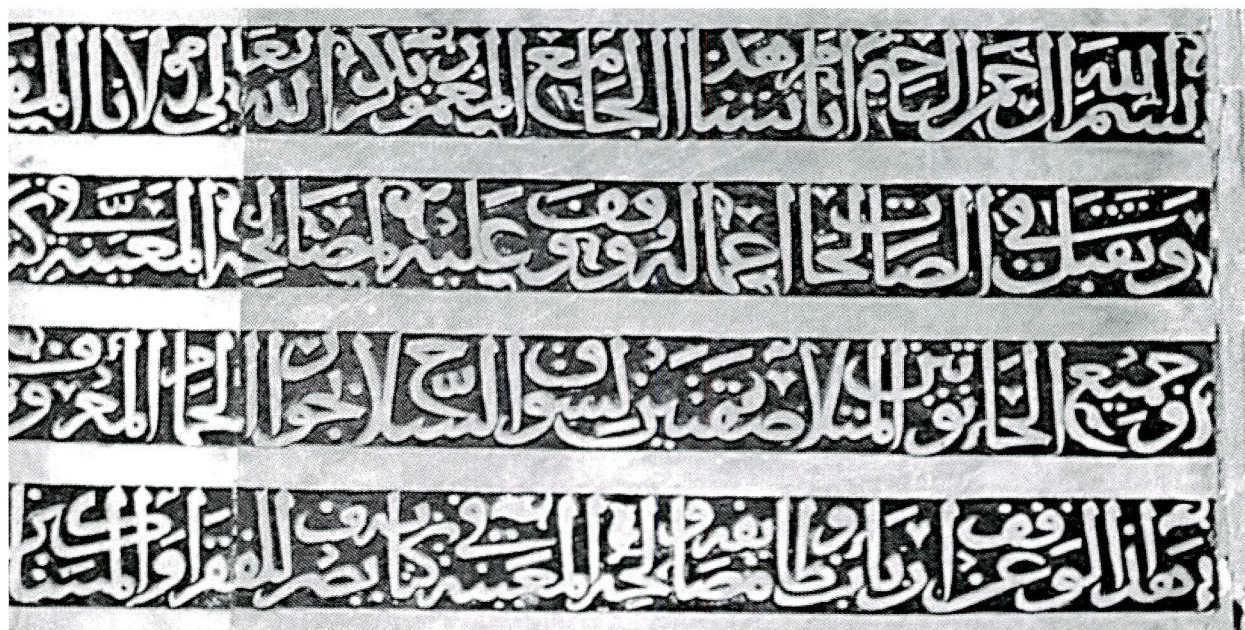 بسم الله الرحمن الرحيم أمر بانشا هذا الجامع المعمور بذكر الله تعالى مولانا
وتقبل في الصالحات اعماله ووقف عليه لمصالحه المعينة في
وجميع الحانوتين المتلاصقتين بسوق السلاح جوار الحمام المعروف
هذا الوقف عن ارباب وظايفه ومصالحه المعينة في كتابه يصرف للفقرا والمساكين